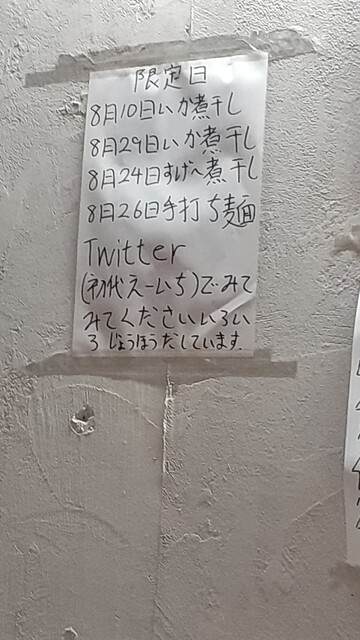 限定日
8月10日いか煮干し
8月29日いか煮干し
8月24日すげへ煮干し
8月26日手打ち麺
Twitter
(初代えーいち)でみて
みてくださいいろい
ろじょうほうだしています。